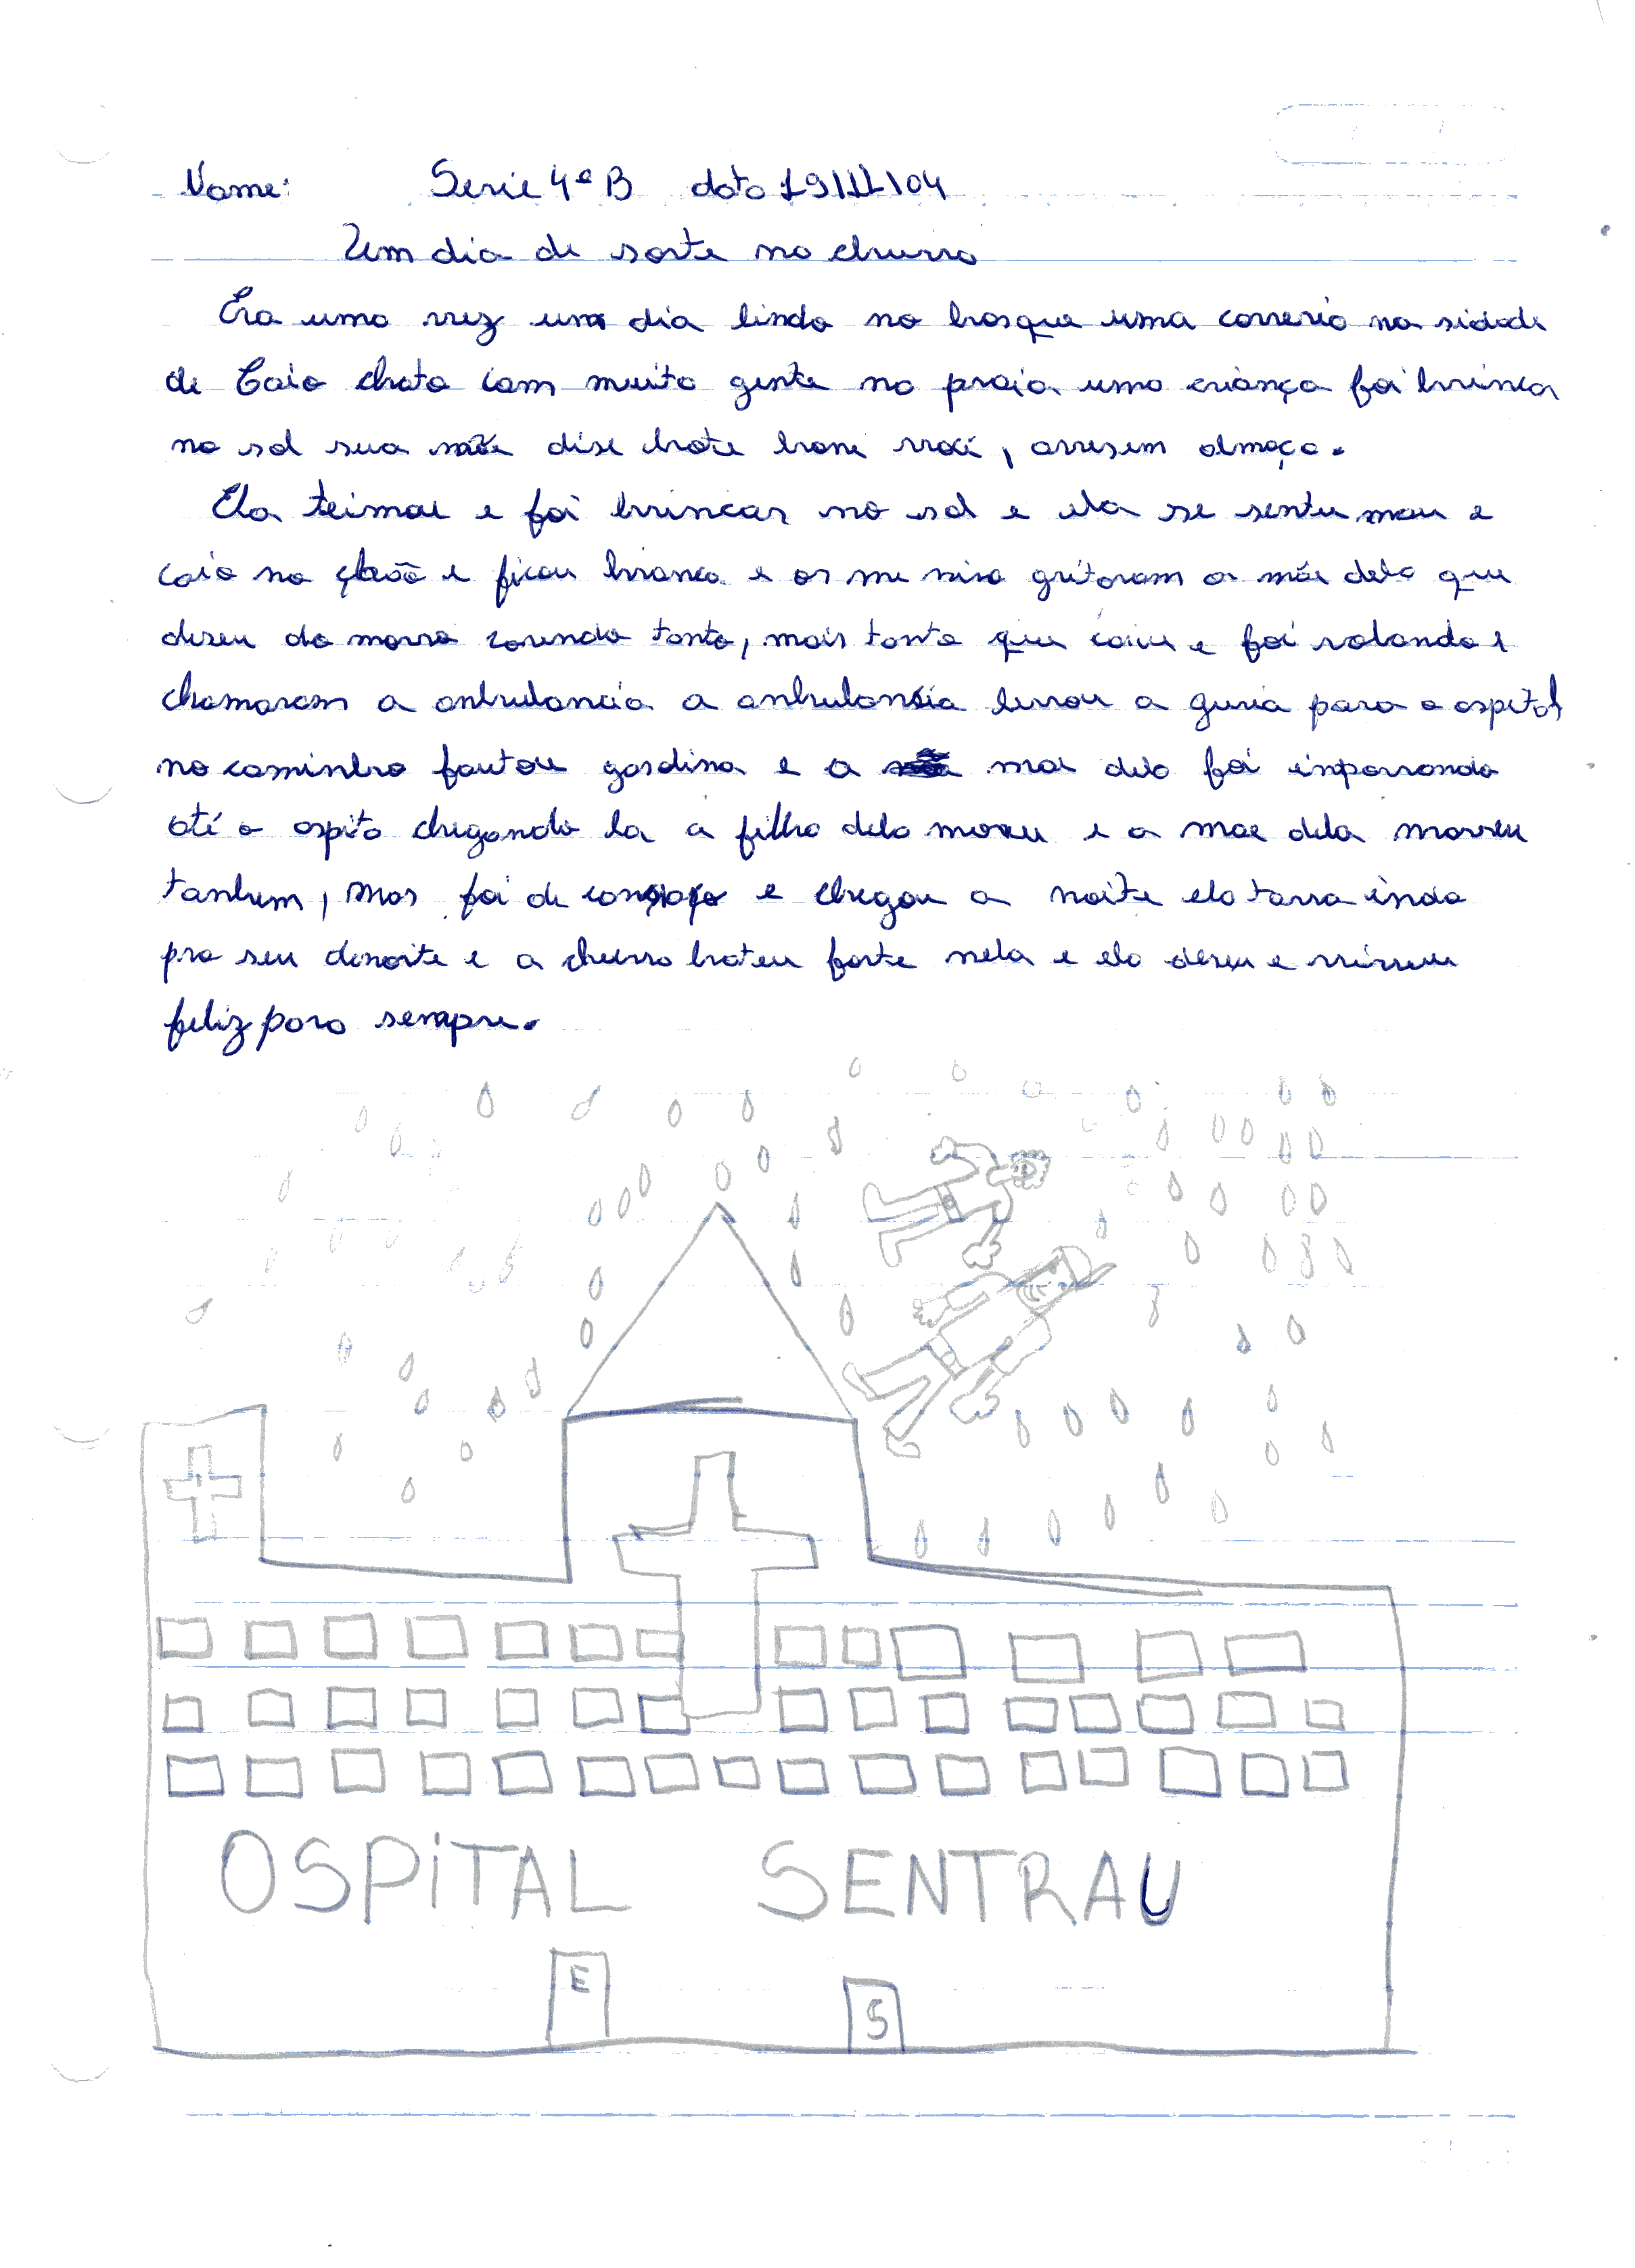 Nome: Serie 4ª B data 19/11/04
Um dia de sorte na chuva
Era uma vez um dia lindo no bosque uma correrio na sidade
de Caio chato com muita gente na praia uma criança foi brinca
no sol sua mãe dise bote bone você, arresem almoça.
Ela teimou e foi brincar no sol e ela se sentu mau e
caio no chão e ficou branca e os me nino gritaram a mãe dela que
deseu do morro corendo tanto, mais tanto que caiu e foi rolando e
chamaram a anbulancia a anbulansia levou a guria para o ospital
no caminho fautou gasolina e a mae dela foi inporrando
até o ospito chegando la a filha dela moreu e a mae dela morreu
tanbem, mas foi de e chegou a noite ela tava indo
pro seu denoite e a chuva bateu forte nela e ela deseu e viveu
feliz para sempre.
OSPITAL SENTRAU
E
S